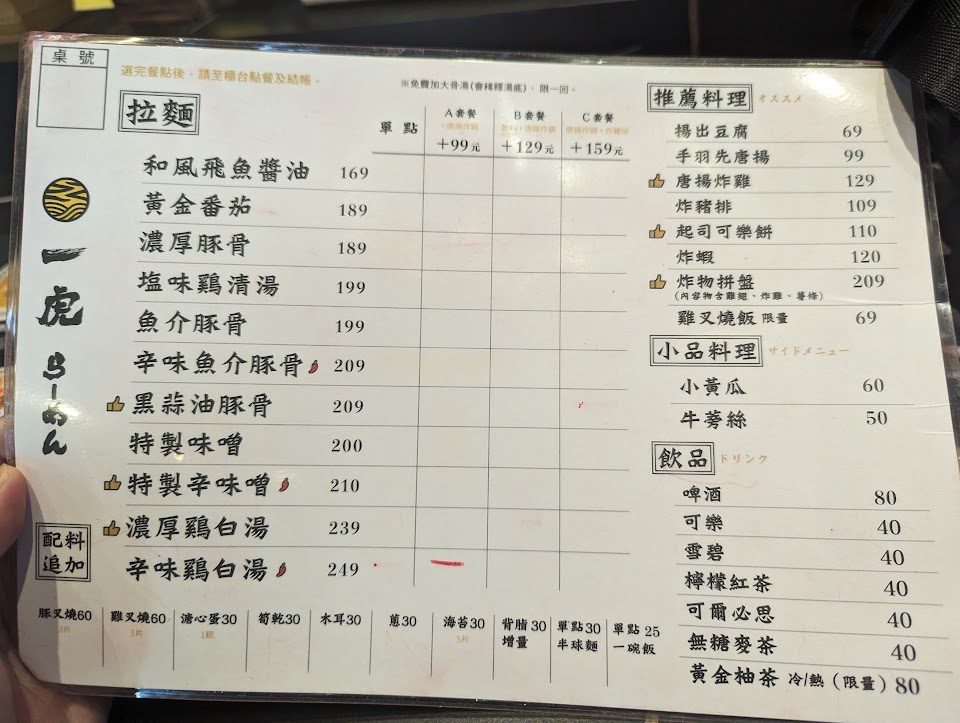 桌號
選完餐點後，請至櫃台點餐及結帳。
※免費加大骨湯(會稀釋湯底)，限一回。
一虎
らーめん
拉麵
單點
A套餐
+99元
B套餐
+129元
C套餐
+159元
和風飛魚醬油 169
黃金番茄 189
濃厚豚骨 189
塩味鶏清湯 199
魚介豚骨 199
辛味魚介豚骨 209
黑蒜油豚骨 209
特製味噌 200
特製辛味噌 210
濃厚鶏白湯 239
辛味鶏白湯 249
配料
追加
豚叉燒60
3片
雞叉燒60
3片
溏心蛋30
1顆
筍乾30
木耳30
蔥30
海苔30
5片
背脂30
增量
單點30
半球麵
單點 25
一碗飯
推薦料理 オススメ
揚出豆腐 69
手羽先唐揚 99
唐揚炸雞 129
炸豬排 109
起司可樂餅 110
炸蝦 120
炸物拼盤 209
(內容物含雞翅、炸雞、薯條)
雞叉燒飯 限量 69
小品料理 サイドメニュー
小黃瓜 60
牛蒡絲 50
飲品 ドリンク
啤酒 80
可樂 40
雪碧 40
檸檬紅茶 40
可爾必思 40
無糖麥茶 40
黃金柚茶 冷/熱（限量）80